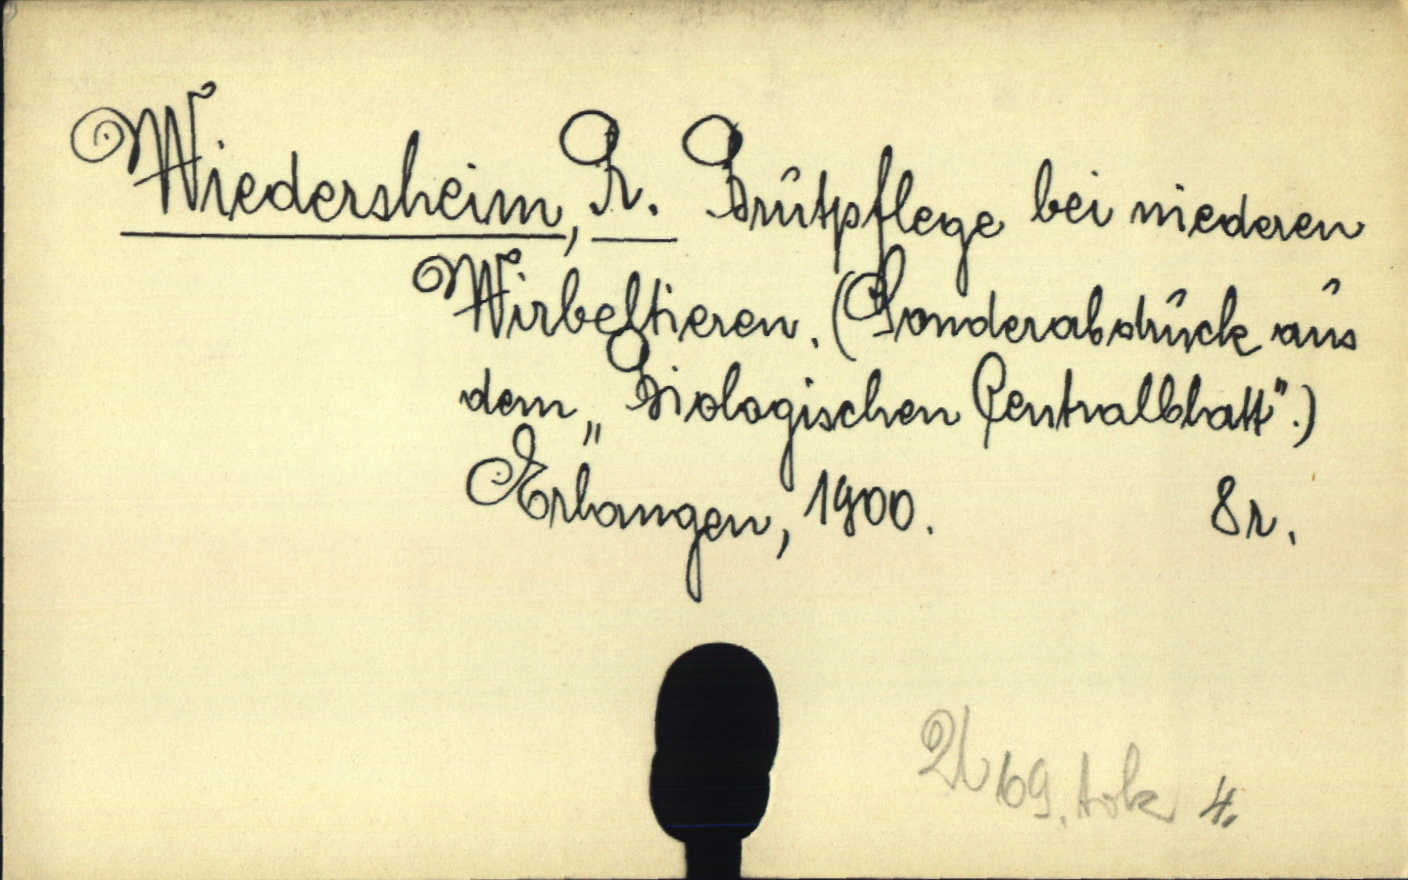 Wiedersheim, R. Brutpflege bei niederen
Wirbeltieren. (Sonderabdruck aus
dem „Biologischen Centralblatt".)
Erlangen, 1900. 8r.
169. tok 4.